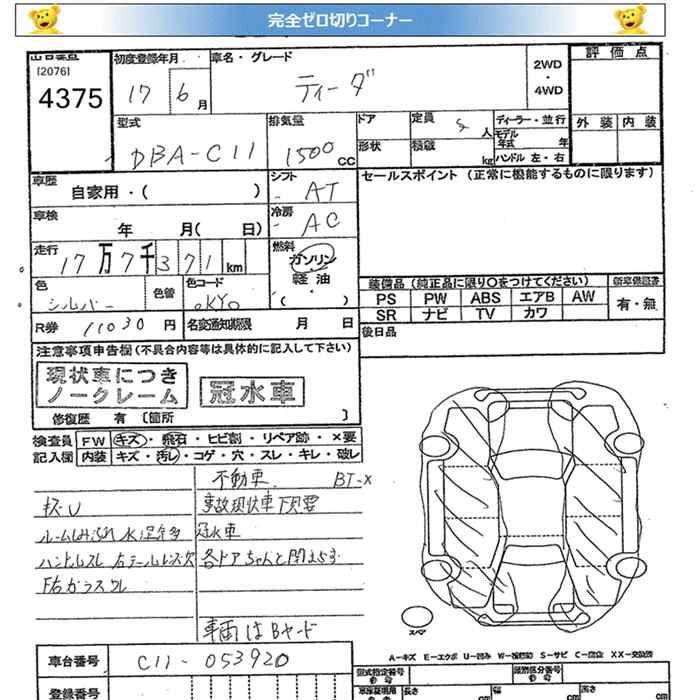 完全ゼロ切りコーナー
[2076]
4375
初度登録年月
17 6月
車名・グレード
ティーダ
2WD
・
4WD
評価点
外装 内装
型式
DBA-C11
排気量
1500CC
ドア
形状
定員 5人
積載 kg
ディーラー・並行
モデル
年式 年
ハンドル 左・右
車歴
自家用・( )
シフト
AT
セールスポイント(正常に機能するものに限ります)
車検
年 月( 日)
冷房
AC
走行
17万7千371km
燃料
ガソリン
・
軽油
( )
色
シルバー
色替
色コード
KY0
装備品(純正品に限り○をつけてください)
新車保証書
PS PW ABS エアB AW
SR ナビ TV カワ
有・無
R券 11030円
名変通知期限 月 日
後日品
注意事項申告欄(不具合内容等は具体的に記入して下さい)
現状車につき
ノークレーム
冠水車
修復歴 有 〔箇所 〕
検査員
記入欄
FW キズ・飛石・ヒビ割・リペア跡・×要
内装 キズ・汚レ・コゲ・穴・スレ・キレ・破レ
不動車 BT-X
キズU
事故現状車下見要
冠水車
ハンドルスレ 右テールレンズ欠
各ドアちゃんと閉まらず
車両はBヤード
スペア
A-キズ E-エクボ U-凹み W-補修跡 S-サビ C-腐食 XX-交換済
車台番号
C11-053920
登録番号
型式指定番号
類別区分番号
長さ cm
幅 cm
高さ cm